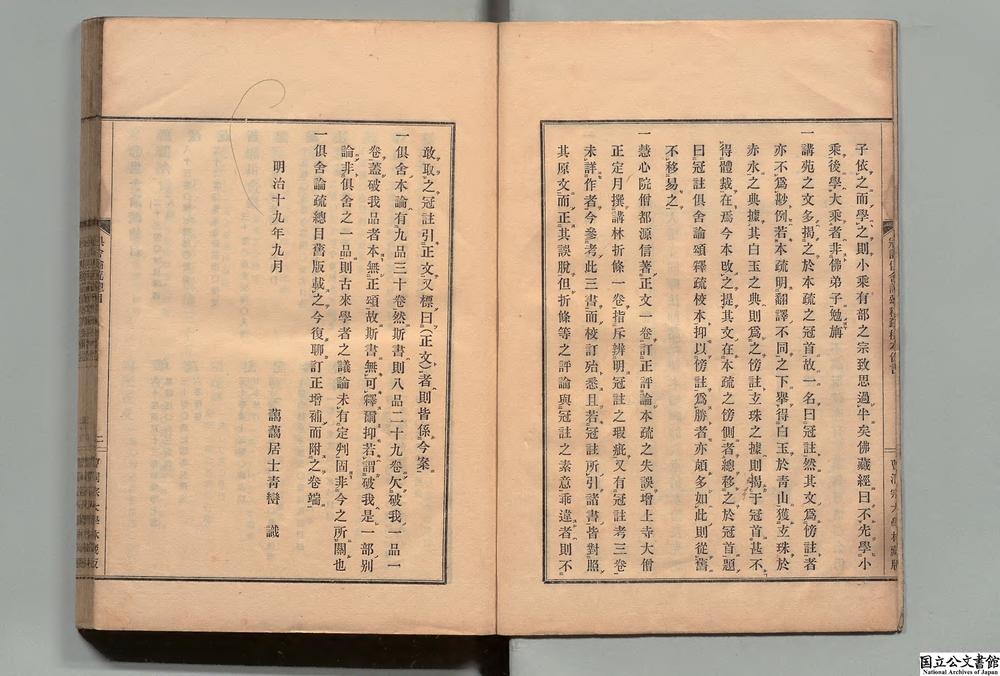 子依之而學之則小乘有部之宗致思過半矣佛藏經曰不先學小
乘後學大乘者非佛弟子勉旃
一講苑之文多揭之於本疏之冠首故一名曰冠註然其文爲傍註者
亦不爲尠例若本疏明翻譯不同之下擧得白玉於青山獲玄珠於
赤永之典據其白玉之典則爲之傍註玄珠之據則揭于冠首甚不
得體裁在焉今本改之提其文在本疏之傍側者總移之於冠首題
曰冠註俱舍論頌釋疏校本抑以傍註爲勝者亦頗多如此則從舊
不移易之
一慧心院僧都源信著正文一卷訂正評論本疏之失誤增上寺大僧
正定月撰講林折條一卷指斥辨明冠註之瑕疵又有冠註考三卷
未詳作者今參考此三書而校訂殆悉且若冠註所引諸書皆對照
其原文而正其誤脫但折條等之評論與冠註之素意乖違者則不
敢取之冠註引正文又標曰(正文)者則皆係今案
一俱舍本論有九品三十卷然斯書則八品二十九卷欠破我一品一
卷蓋破我品者本無正頌故斯書無可釋爾抑若謂破我是一部別
論非俱舍之一品則古來學者之議論未有定判固非今之所關也
一俱舍論疏總目舊版載之今復聊訂正增補而附之卷端
明治十九年九月
藹藹居士青巒 識
二
国立公文書館
National Archives of Japan